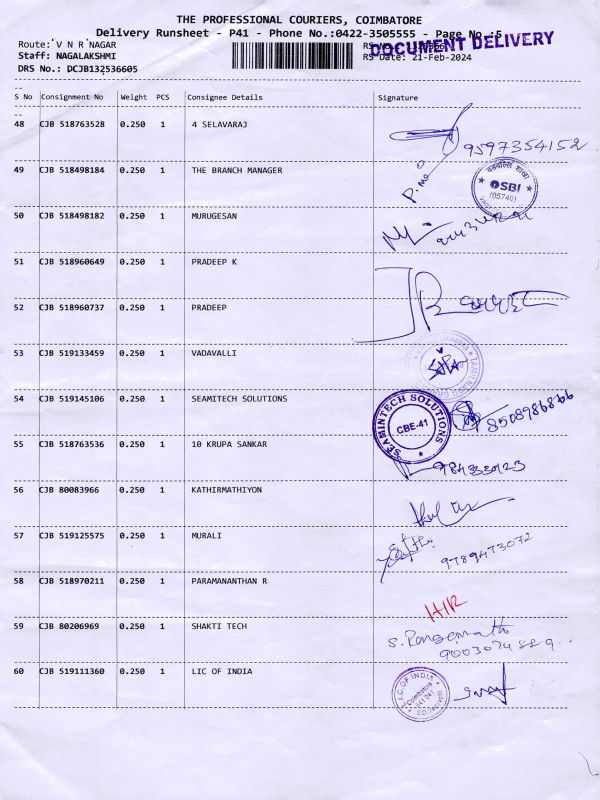 THE PROFESSIONAL COURIERS, COIMBATORE
Delivery Runsheet - P41 - Phone No.:0422-3505555 - Page No.:5
Route: V N R NAGAR
DOCUMENT DELIVERY
Staff: NAGALAKSHMI
RS Date: 21-Feb-2024
DRS No.: DCJB132536605
S No Consignment No Weight PCS Consignee Details Signature
48 CJB 518763528 0.250 1 4 SELAVARAJ
9597354152
49 CJB 518498184 0.250 1 THE BRANCH MANAGER
SBI
(05740)
50 CJB 518498182 0.250 1 MURUGESAN
51 CJB 518960649 0.250 1 PRADEEP K
52 CJB 518960737 0.250 1 PRADEEP
53 CJB 519133459 0.250 1 VADAVALLI
54 CJB 519145106 0.250 1 SEAMITECH SOLUTIONS
SEAMINTECH SOLUTIONS
CBE-41
8508986866
55 CJB 518763536 0.250 1 10 KRUPA SANKAR
56 CJB 80083966 0.250 1 KATHIRMATHIYON
57 CJB 519125575 0.250 1 MURALI
9789473072
58 CJB 518970211 0.250 1 PARAMANANTHAN R
H/R
59 CJB 80206969 0.250 1 SHAKTI TECH
S. Ranganath
60 CJB 519111360 0.250 1 LIC OF INDIA
L.I.C. OF INDIA
Coimbatore
641 041